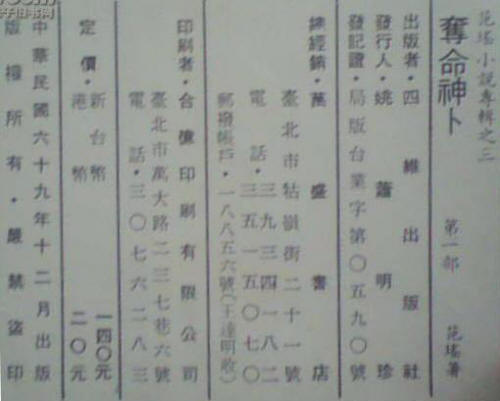 范瑤小說專輯之三
奪命神卜 第一部 范瑤著
出版者·四維出版社
發行人·姚蕭明珍
發記證·局版台業字第〇五九〇號
總經銷·萬盛書店
臺北市牯嶺街二十一號
電話·三九三四一八二
三五一五〇七〇
郵撥帳戶·一八八五六號(王達明收)
印刷者·合億印刷有限公司
臺北市萬大路二三七巷六號
電話·三〇七六二八三
定價·新台幣 一四〇元
港幣 二〇元
中華民國六十九年十二月出版
版權所有·嚴禁盜印